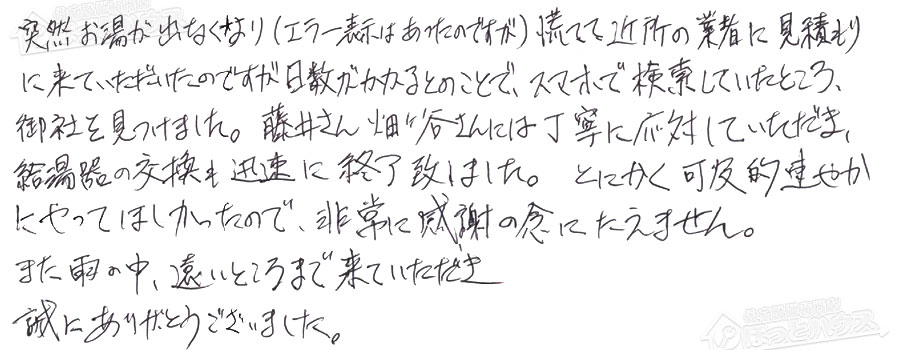 突然お湯が出なくなり(エラー表示はあったのですが)慌てて近所の業者に見積もり
に来ていただいたのですが日数がかかるとのことで、スマホで検索していたところ、
御社を見つけました。藤井さん畑ヶ谷さんには丁寧に応対していただき、
給湯器の交換も迅速に終了致しました。とにかく可及的速やか
にやってほしかったので、非常に感謝の念にたえません。
また雨の中、遠いところまで来ていただき
誠にありがとうございました。